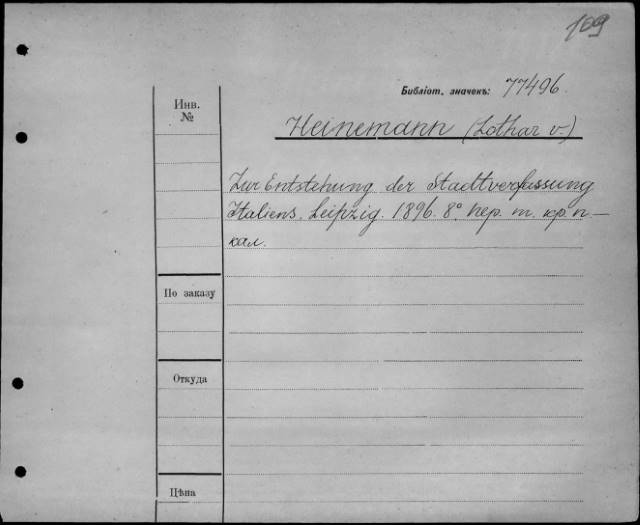 109
Библіот. значекъ: 77496.
Инв.
№
Heinemann (Lothar v.)
Zur Entstehung der Stadtverfassung
Italiens. Leipzig. 1896. 8º. пер. т. кр. п-
кал.
По заказу
Откуда
Цѣна